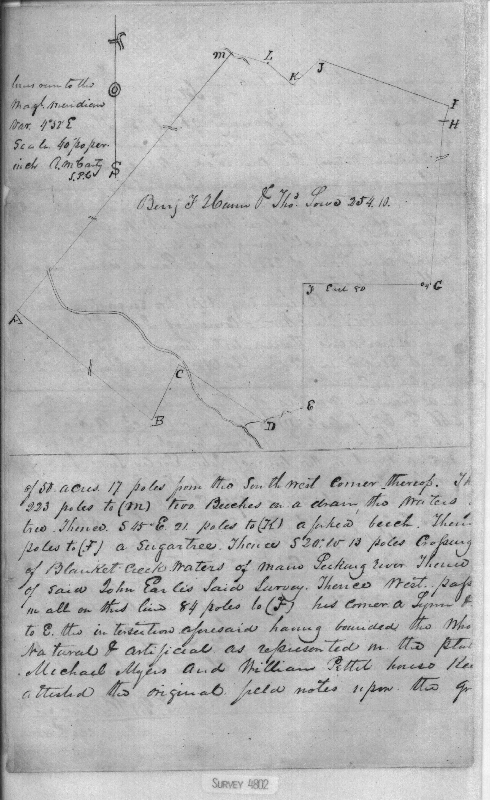 m
L
K
J
I
H
lines run to the
Magl. meridian
Var. 4°37 E
Scale 40 po per.
inch R. McCarty
S.P.C
S
Benj F & Thos. Lowe 254. 10.
F
G
A
C
B
D
E
of 50 acres 17 poles from the South West Corner thereof. Th
223 poles to (M) two Beeches on a drain the Waters
tree Thence S 45° E 21 poles to (K) a forked beech. Thence
poles to (F) a Sugartree. Thence S 20° W 13 poles Crossing
of Blanket Creek Waters of main Licking River Thence
of said John Earles Said Survey. Thence West. pass
in all on this line 84 poles to (F) his corner a Lynn &
to E. the intersection aforesaid having bounded the Who
Natural & artificial as represented on the plat
Michael Myers and William Pettit house Kee
attested the original field notes upon the gr
SURVEY 4802